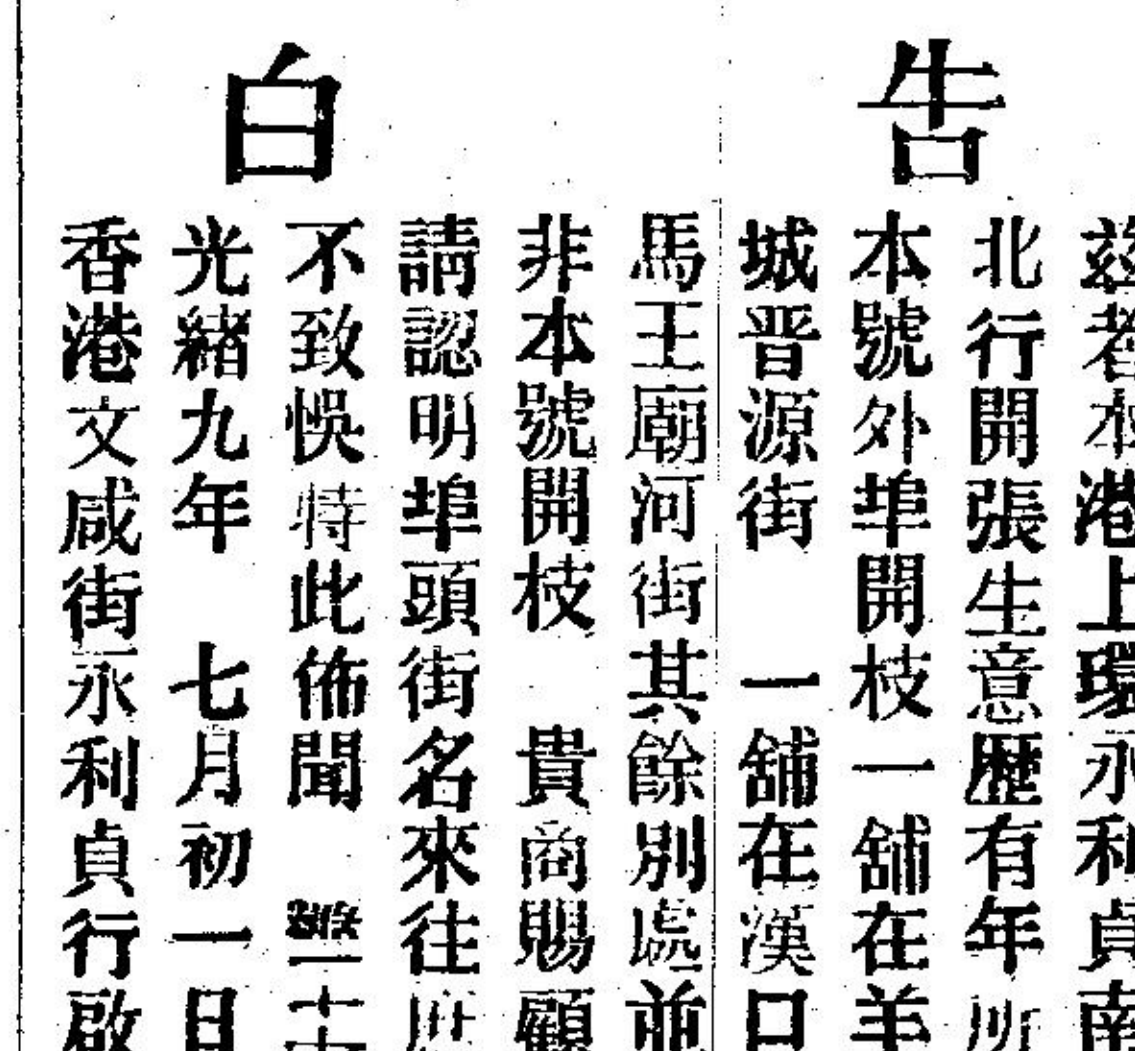 告白
茲者本港上環永利貞南
北行開張生意歷有年所
本號外埠開枝一舖在羊
城晋源街 一舖在漢口
馬王廟河街其餘別處並
非本號開枝 貴商賜顧
請認明埠頭街名來往庶
不致悞特此佈聞
光緒九年 七月初一日
香港文咸街永利貞行啟